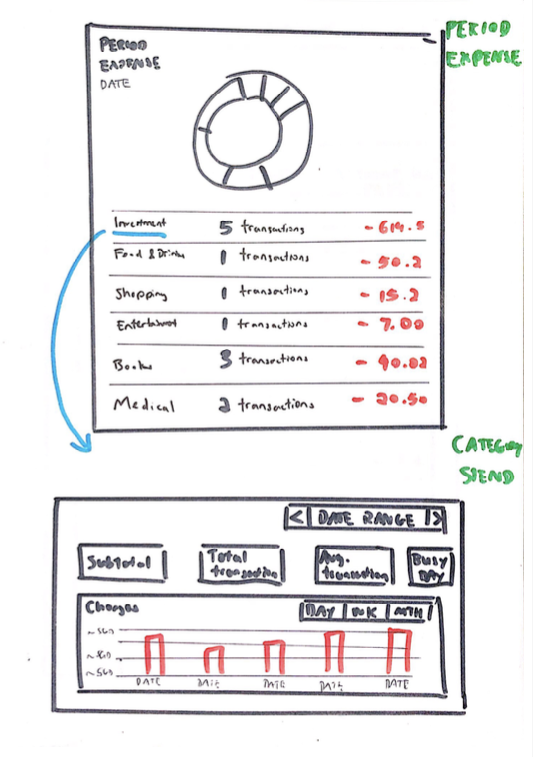 PERIOD
EXPENSE
PERIOD
EXPENSE
DATE
Investment 5 transactions - 614.5
Food & Drinks 1 transactions - 50.2
Shopping 1 transactions - 15.2
Entertainment 1 transactions - 7.00
Books 3 transactions - 90.02
Medical 2 transactions - 20.50
CATEGORY
SPEND
< DATE RANGE >
Subtotal Total transaction Avg. transaction Busy DAY
Charges DAY WK MTH
DATE DATE DATE DATE DATE